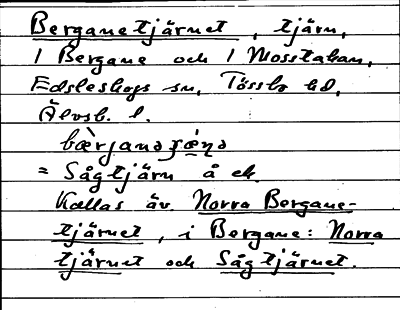 Berganetjärnet, tjärn,
1 Bergane och 1 Mosstakan,
Edsleskogs sn, Tössbo hd,
Älvsb. l.
= Sågtjärn å ek.
Kallas äv. Norra Bergane-
tjärnet, i Bergane: Norra
tjärnet och Sågtjärnet.